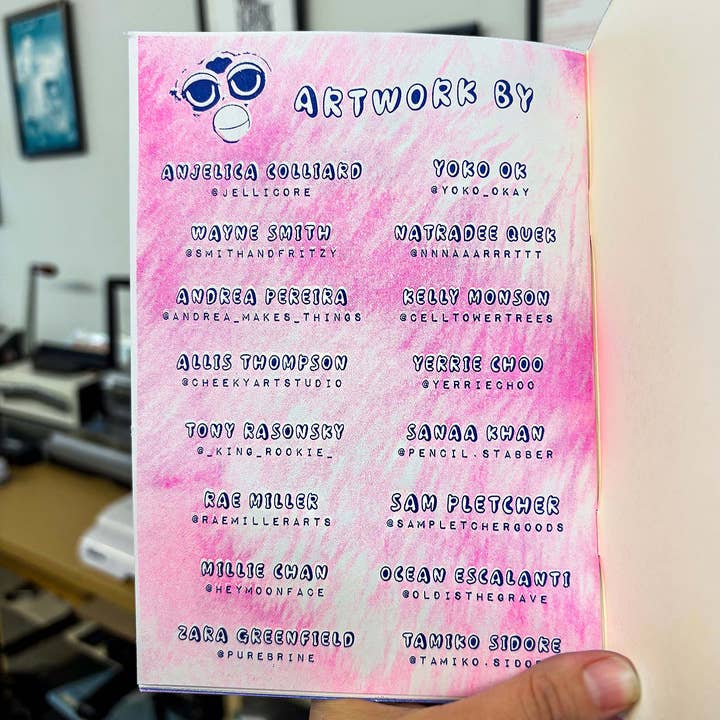 ARTWORK BY
ANJELICA COLLIARD
@JELLICORE
WAYNE SMITH
@SMITHANDFRITZY
ANDREA PEREIRA
@ANDREA_MAKES_THINGS
ALLIS THOMPSON
@CHEEKYARTSTUDIO
TONY RASONSKY
@_KING_ROOKIE_
RAE MILLER
@RAEMILLERARTS
MILLIE CHAN
@HEYMOONFACE
ZARA GREENFIELD
@PUREBRINE
YOKO OK
@YOKO_OKAY
NATRADEE QUEK
@NNNAAARRRTTT
KELLY MONSON
@CELLTOWERTREES
YERRIE CHOO
@YERRIECHOO
SANAA KHAN
@PENCIL.STABBER
SAM PLETCHER
@SAMPLETCHERGOODS
OCEAN ESCALANTI
@OLDISTHEGRAVE
TAMIKO SIDORE